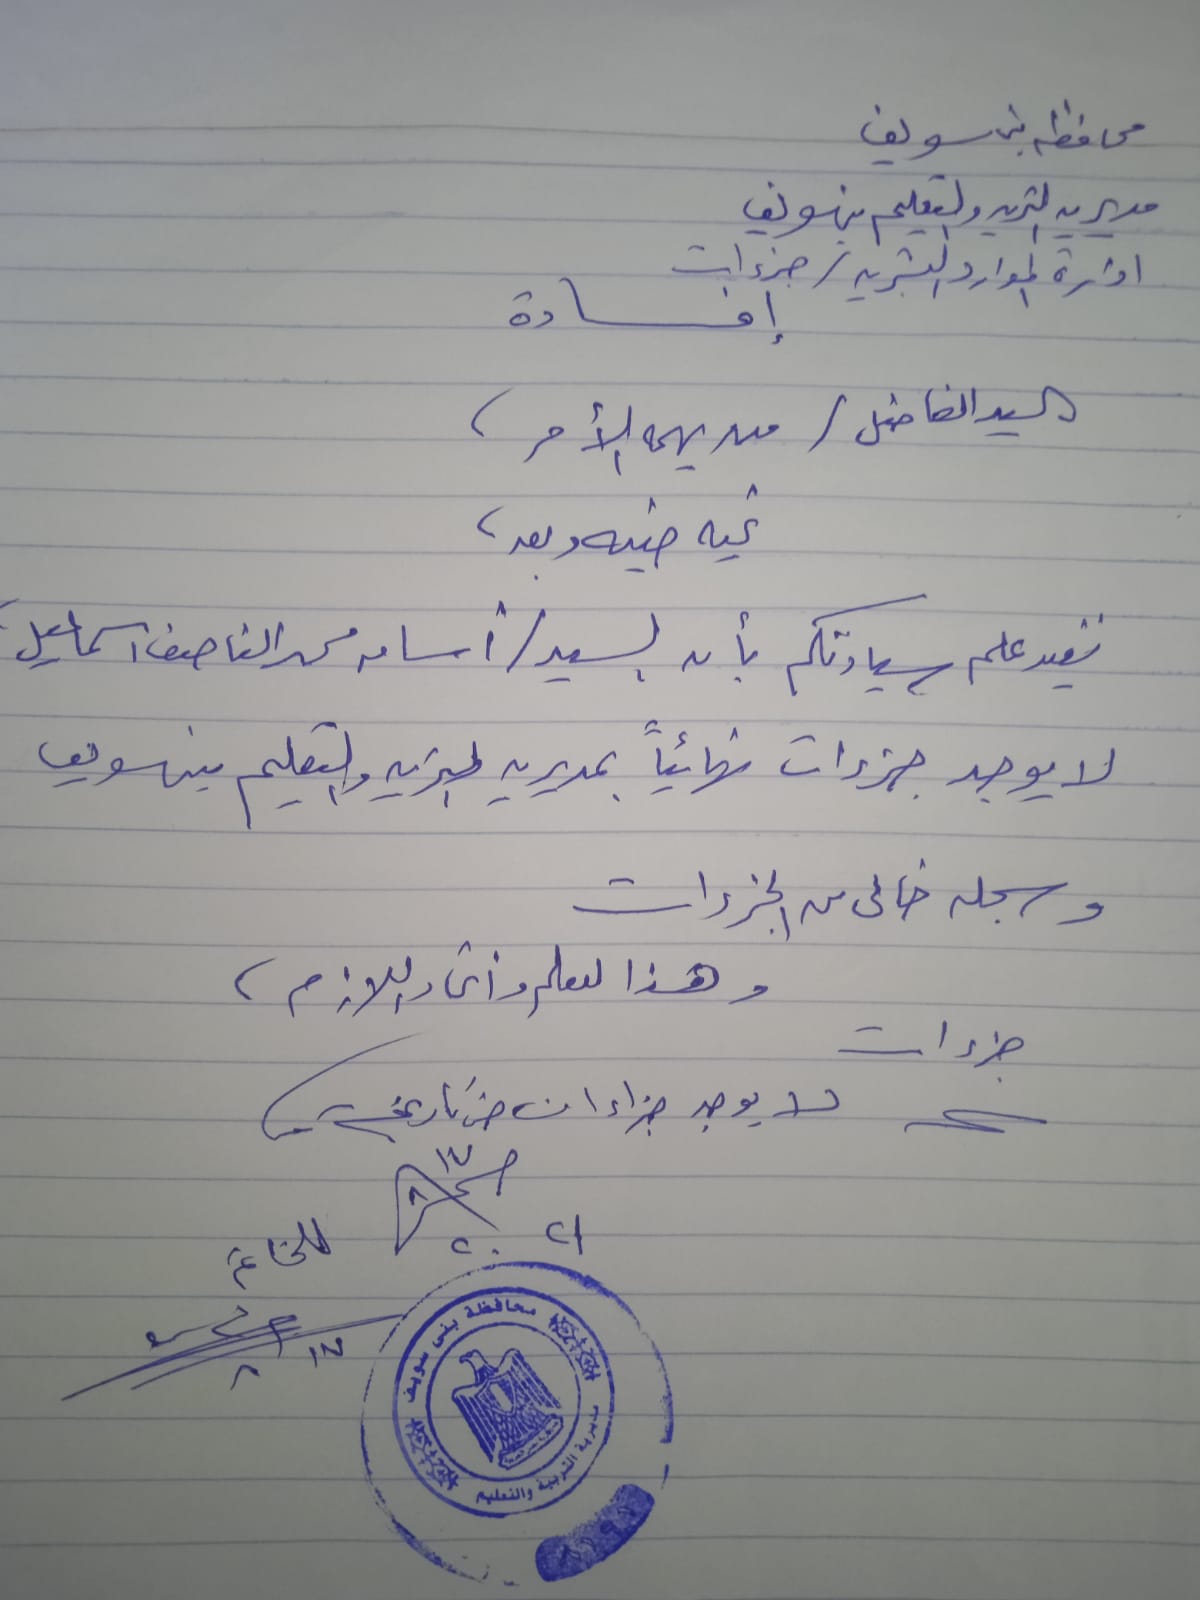 محافظه بنى سويف
مديريه التربيه والتعليم ببنى سويف
ادارة الموارد البشريه / جزءات
إفــــادة
السيد الفاضل / من يهمه الأمر ،
تحيه طيبه وبعد ،
نفيد علم سيادتكم بأن السيد / أسامه محمد القاصف اسماعيل
لا يوجد جزءات نهائياً بمديريه التربيه والتعليم ببنى سويف
وسجله خالى من الجزءات
وهذا للعلم واتخاذ اللازم ،
جزءات
لا يوجد جزاءات حتى تاريخه
١٧
٨
٢٠٢١
للختم
١٧
٨
محافظة بنى سويف
مديرية التربية والتعليم